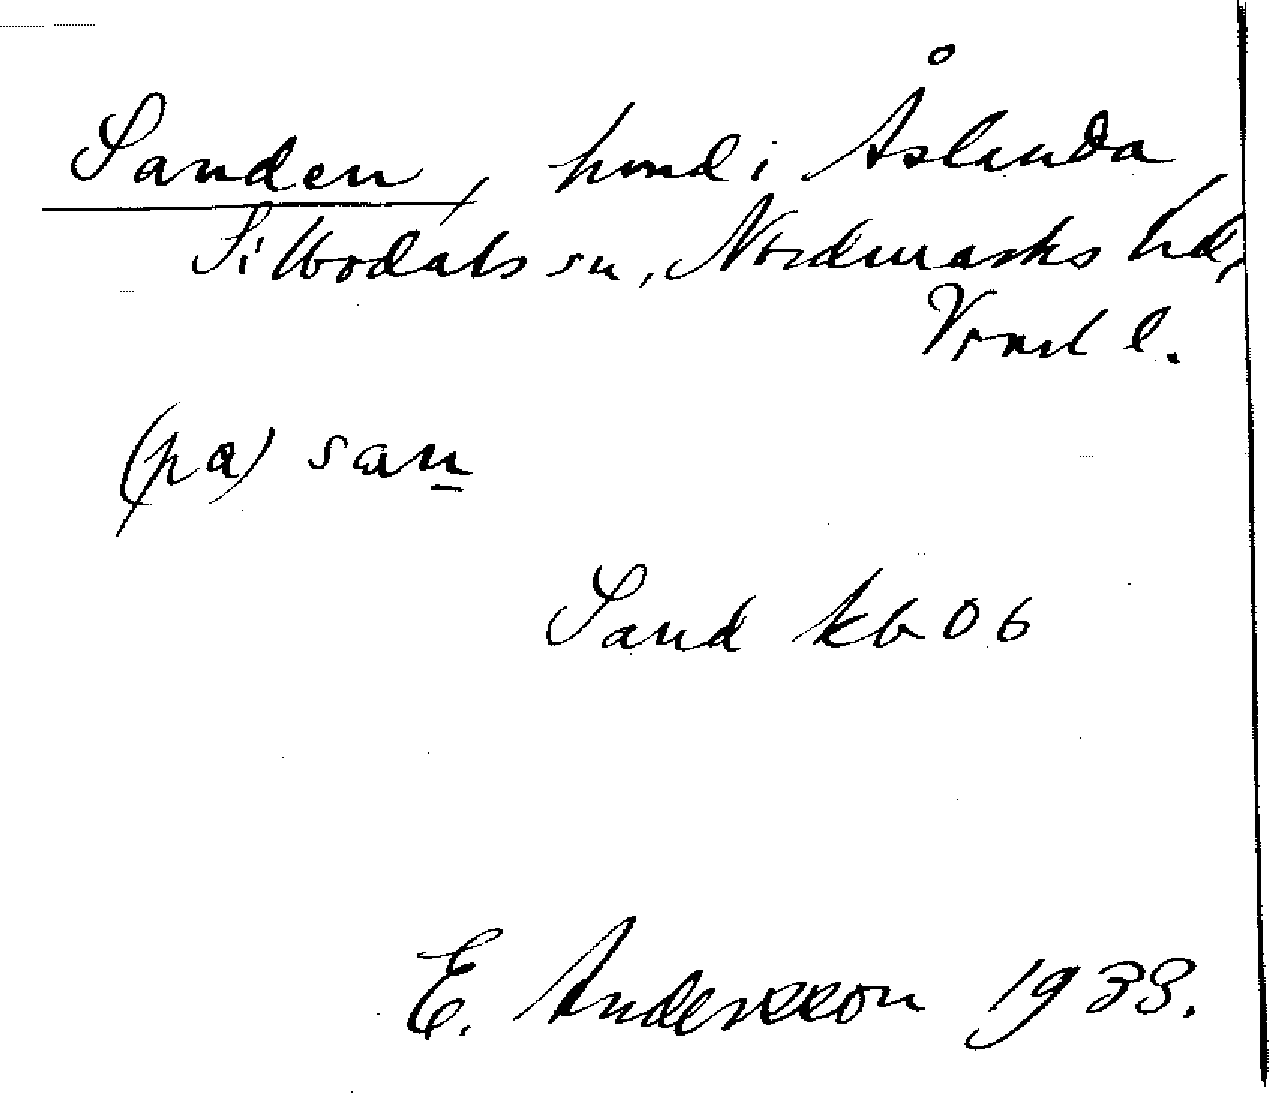 Sanden, hmd i Åslanda
Silbodals sn, Nordmarks hd,
Vrml l.
(pa) san
Sand kb 06
E. Andersson 1933.